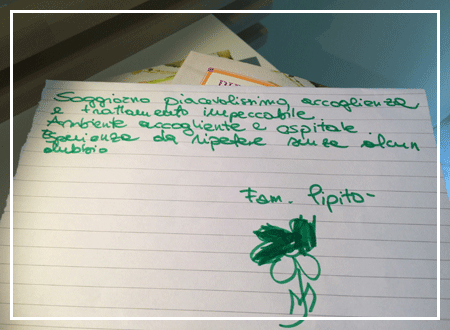 Soggiorno piacevolissimo, accoglienza
e trattamento impeccabile.
Ambiente accogliente e ospitale.
Esperienza da ripetere senza alcun
dubbio
Fam. Pipito-